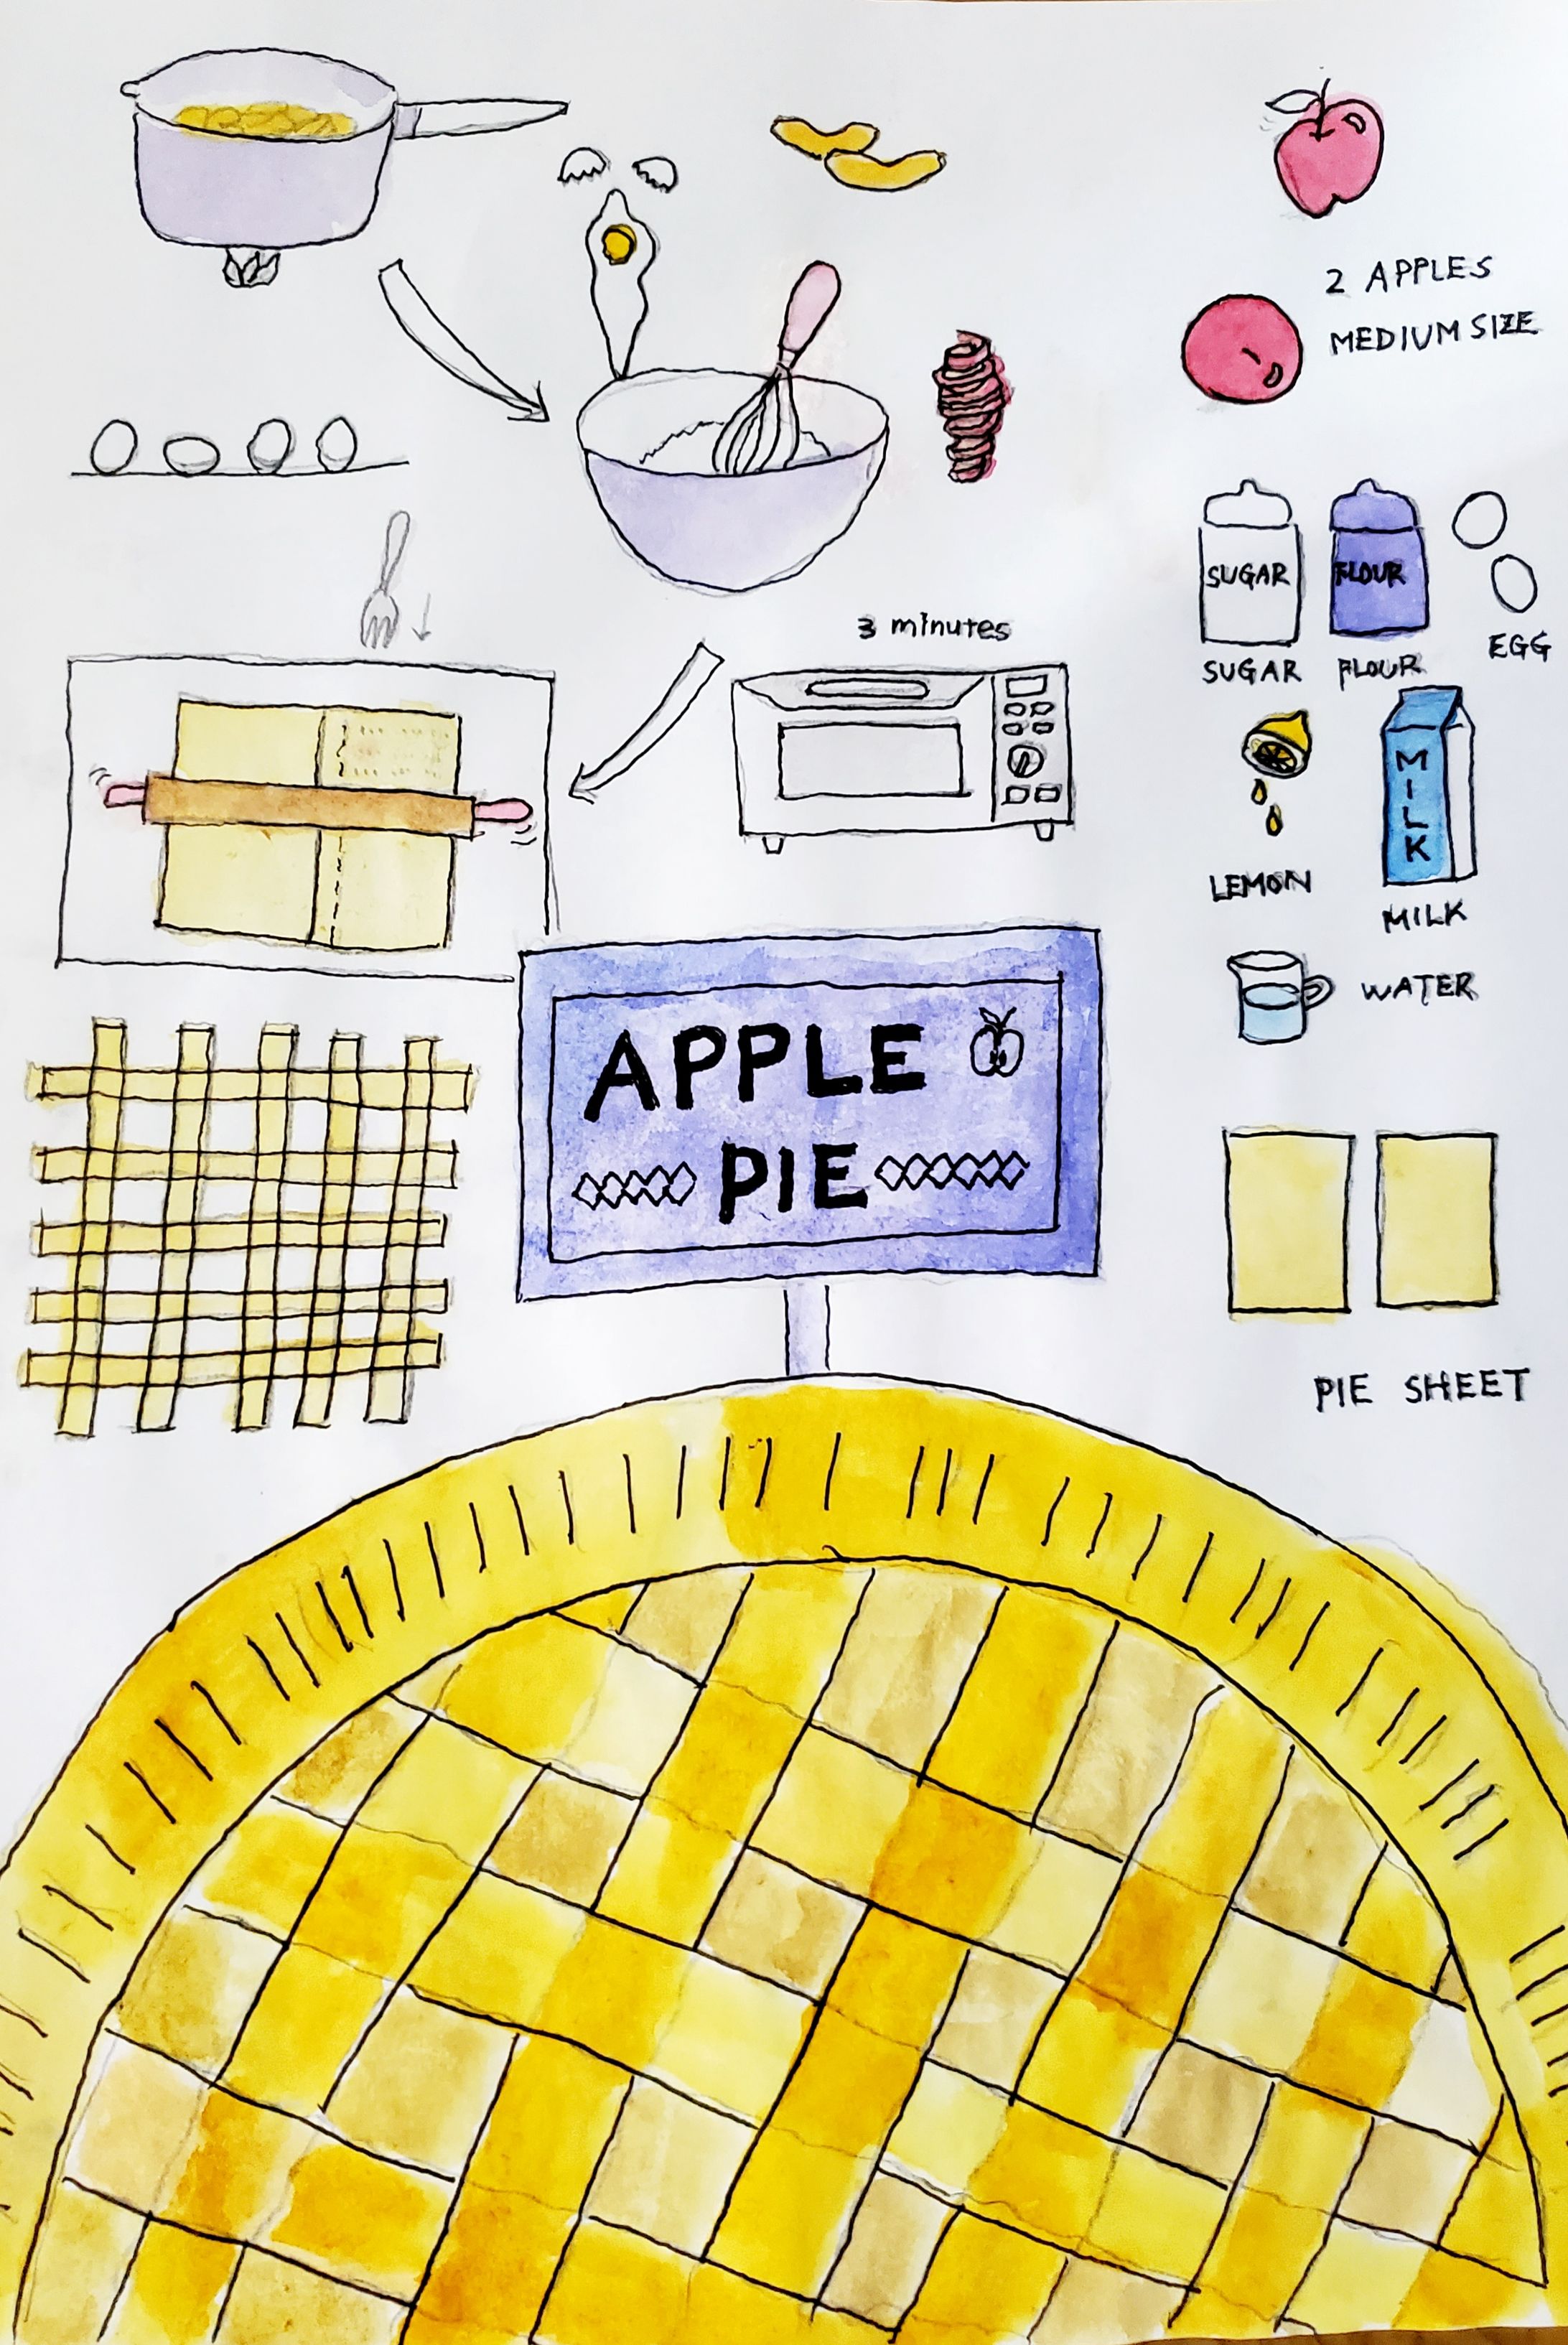 2 APPLES
MEDIUM SIZE
SUGAR
FLOUR
SUGAR
FLOUR
EGG
3 minutes
LEMON
MILK
MILK
WATER
APPLE
PIE
PIE SHEET